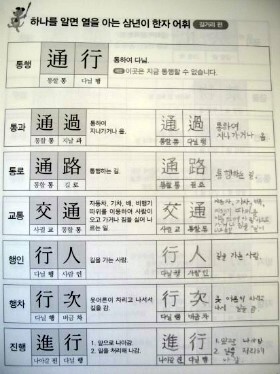 하나를 알면 열을 아는 삼년이 한자 어휘 길거리 편
통행 通 行 통하여 다님.
통할 통 다닐 행 이곳은 지금 통행할 수 없습니다.
통과 通 過 통하여 通 過 통하여
통할 통 지날 과 지나가거나 옴. 지나가거나 옴.
통로 通 路 통행하는 길. 通 路 통행하는 길.
통할 통 길 로 통할 통 길 로
교통 交 通 자동차, 기차, 배, 비행기 交 通 자동차, 기차, 배,
따위를 이용하여 사람이
오고 가거나 짐을 실어 나
사귈 교 통할 통 르는 일. 사귈 교 통할 통
행인 行 人 길을 가는 사람. 行 人 길을 가는 사람.
다닐 행 사람 인 다닐 행 사람 인
행차 行 次 웃어른이 차리고 나서서 行 次
길을 감.
다닐 행 버금 차 다닐 행 버금 차
진행 進 行 1. 앞으로 나아감. 進 行
2. 일을 처리해 나감.
나아갈 진 다닐 행 나아갈 진 다닐 행